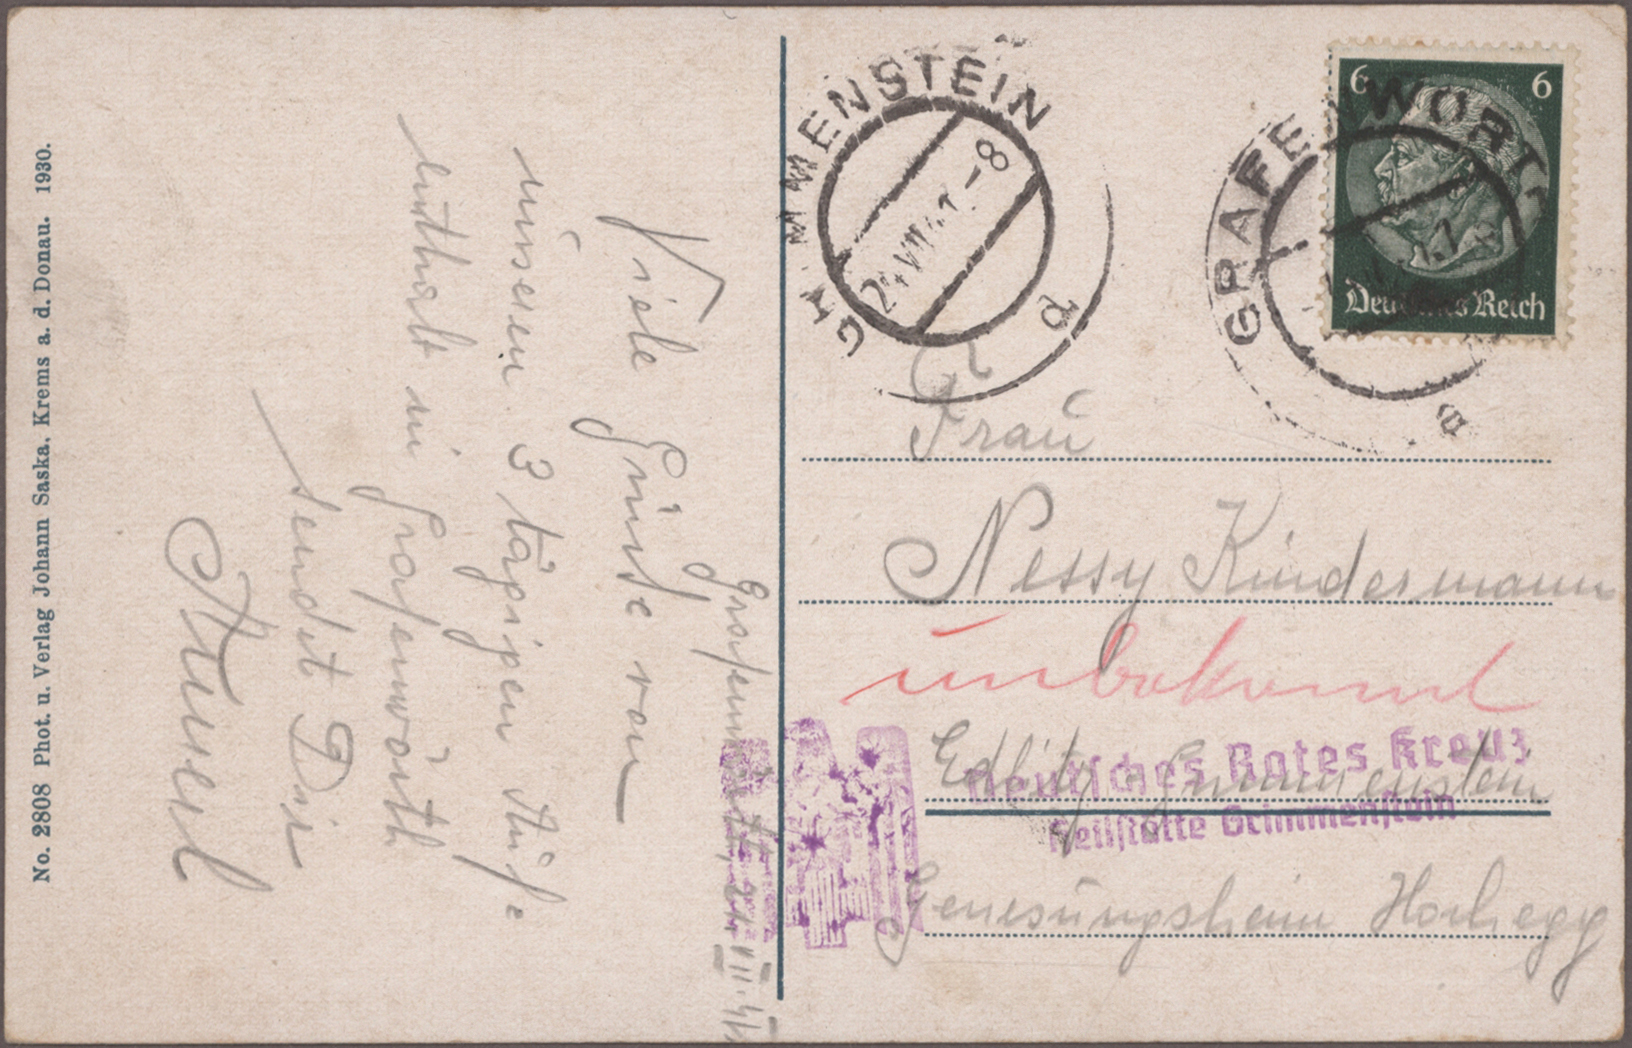 No. 2808 Phot. u. Verlag Johann Saska, Krems a. d. Donau. 1930.
Grafenwörth, 21.VII.41
Viele Grüße von
unseren 3 tägigen Aufe
enthalt in Grafenwörth
sendet Dir
GRIMMENSTEIN
24.VII.41.-8
GRAFENWÖRT
a
6 6
Deutsches Reich
Frau
Nessy Kindermann
unbekannt
Edlitz Grimmenstein
Deutsches Rotes Kreuz
Heilstätte Grimmenstein
Genesungsheim Hochegg